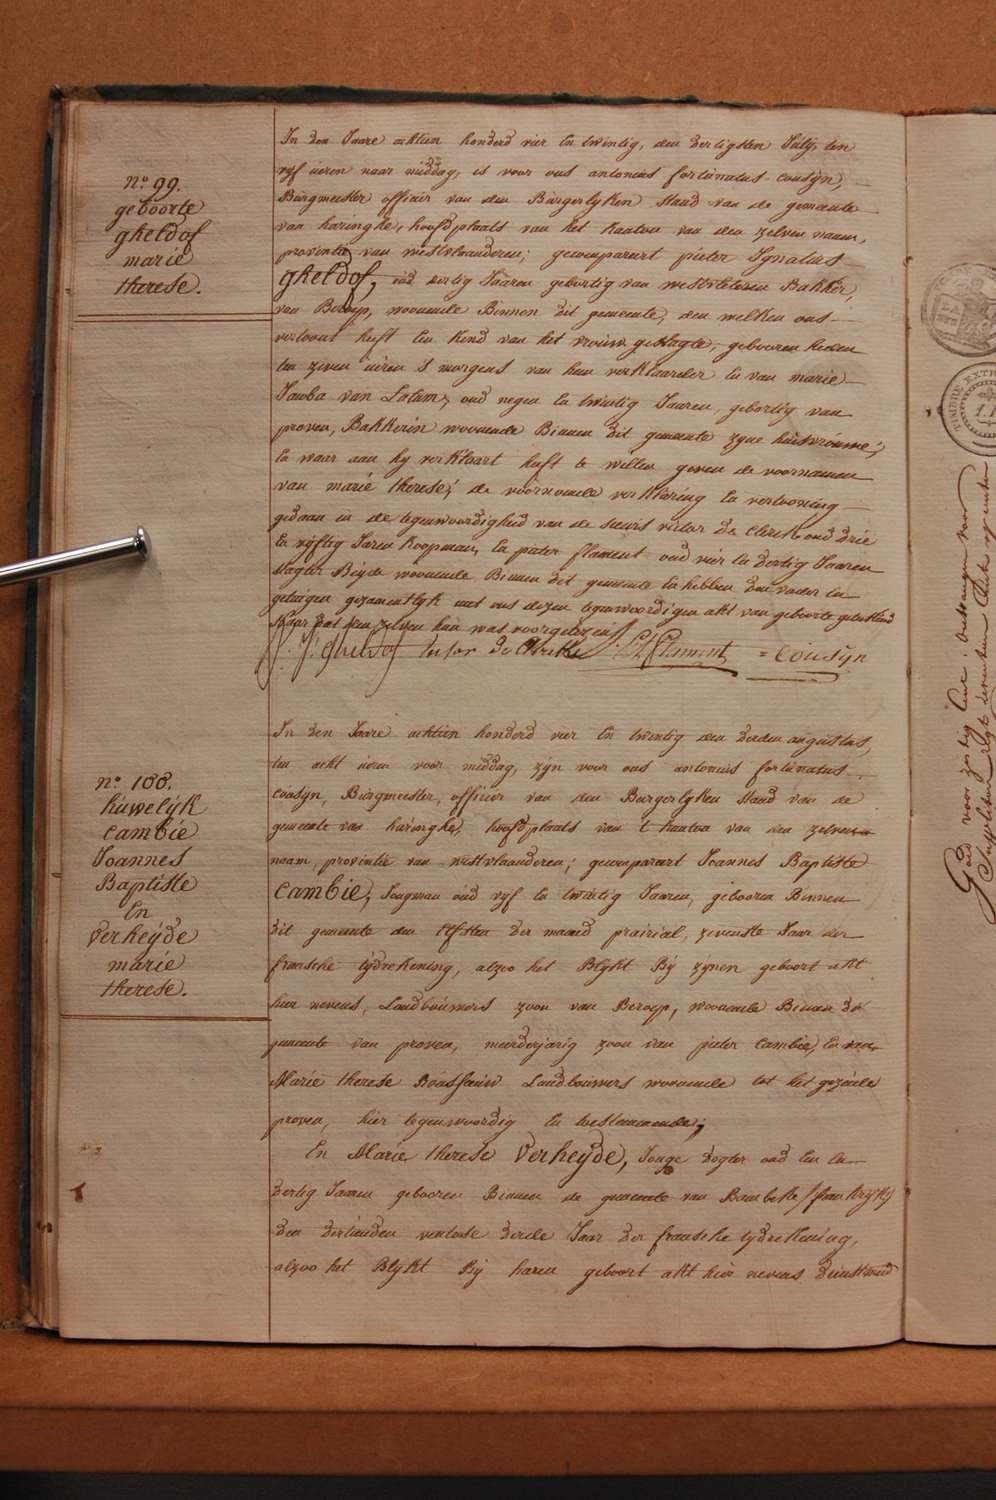 N.º 99.
geboorte
gheldof
marie
therese.
In den Jaare achtien honderd vier En twintig, den dertigsten July, ten
vyf ueren naar middag, is voor ons antonius fortunatus cousÿn,
Burgmeester officier van den Burgerlyken Stand van de gemeente
van haringhe, hoofdplaats van het kanton van den zelven naam,
provintie van westvlaanderen; gecompareert pieter Ignatius
gheldof, oud dertig Jaaren gebortig van westvleteren Bakker,
van Beroep, woonende Binnen dit gemeente, den welken ons
vertoont heeft Een Kind van het vrouw geslagte, gebooren heden
ten zeven ueren 's morgens van hem verklaarder En van marie
Jacoba van Latem, oud negen En twintig Jaaren, gebortig van
proven, Bakkerin woonende Binnen dit gemeente zyne huisvrouwe;
En waar aan hy verklaart heeft te willen geven de voornamen
van marie therese; de voornoemde verklaring En vertooning
gedaan in de tegenwoordigheid van de sieurs victor De Clerck oud drie
En vyftig Jaren Koopman, En pieter flament oud vier En dertig Jaaren
slagter Beÿde woonende Binnen dit gemeente En hebben den vader En
getuigen gezamentlyk met ons dezen tegenwoordigen akt van geboorte geteekend
Naar dat den zelven hun was voorgelezen
P. J. Gheldof victor De Clerck P. Flament = Cousÿn
N.º 100.
huwelÿk
cambie
Joannes
Baptiste
En
Verheÿde
marie
therese.
In den Jaare achtien honderd vier En twintig den derden augustus,
ten acht ueren voor middag, zÿn voor ons antonius fortunatus
cousyn, Burgmeester, officier van den Burgerlyken Stand van de
gemeente van haringhe, hoofdplaats van 't kanton van den zelven
naam, provintie van westvlaanderen; gecompareert Joannes Baptiste
Cambie, Jongman oud vyf En twintig Jaaren, gebooren Binnen
dit gemeente den Elfsten der maand prairial, zevenste Jaar der
fransche tydrekening, alzoo het Blykt By zynen geboort akt
hier nevens, Landbouwers zoon van Beroep, woonende Binnen de
gemeente van proven, meerderjarig zoon van pieter Cambie, En van
Marie therese Landbouwers woonende tot het gezeide
proven, hier tegenwoordig En toestemmende;
En Marie therese Verheÿde, Jonge dogter oud Een En
dertig Jaaren gebooren Binnen de gemeente van Bambeke /frankryk/
den dertienden ventose derde Jaar der fransche tydrekening,
alzoo het Blykt By haren geboort akt hier nevens dienstmeid